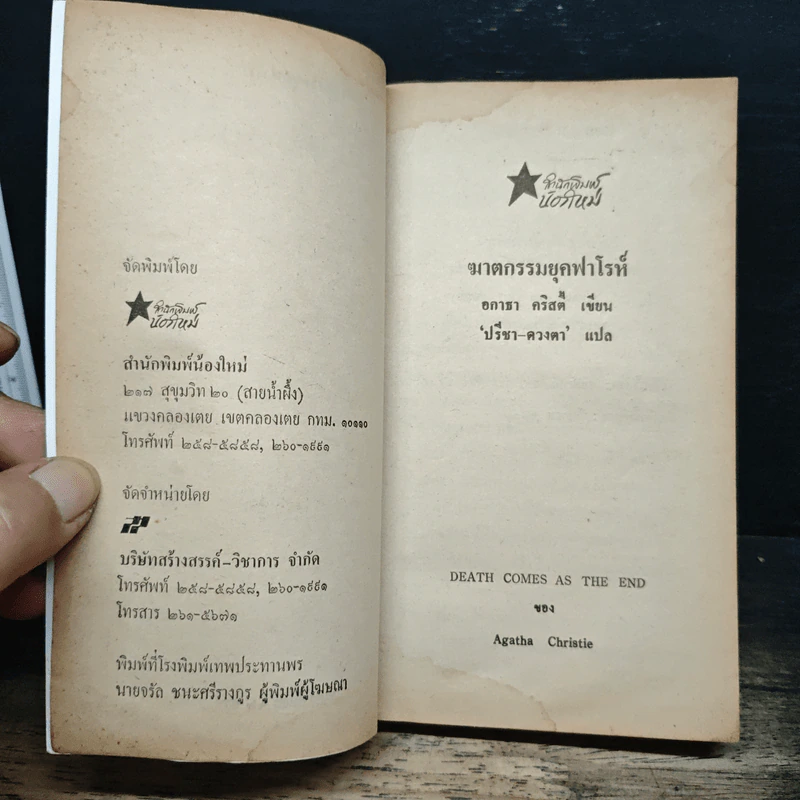 จัดพิมพ์โดย
สำนักพิมพ์
น้องใหม่
สำนักพิมพ์น้องใหม่
๒๑๗ สุขุมวิท ๒๐ (สายน้ำผึ้ง)
แขวงคลองเตย เขตคลองเตย กทม. ๑๐๑๑๐
โทรศัพท์ ๒๕๘-๕๘๕๘, ๒๖๐-๑๙๙๑
จัดจำหน่ายโดย
บริษัทสร้างสรรค์-วิชาการ จำกัด
โทรศัพท์ ๒๕๘-๕๘๕๘, ๒๖๐-๑๙๙๑
โทรสาร ๒๖๑-๕๖๗๑
พิมพ์ที่โรงพิมพ์เทพประทานพร
นายจรัล ชนะศรีรางกูร ผู้พิมพ์ผู้โฆษณา
สำนักพิมพ์
น้องใหม่
ฆาตกรรมยุคฟาโรห์
อกาธา คริสตี้ เขียน
‘ปรีชา-ดวงตา’ แปล
DEATH COMES AS THE END
ของ
Agatha Christie